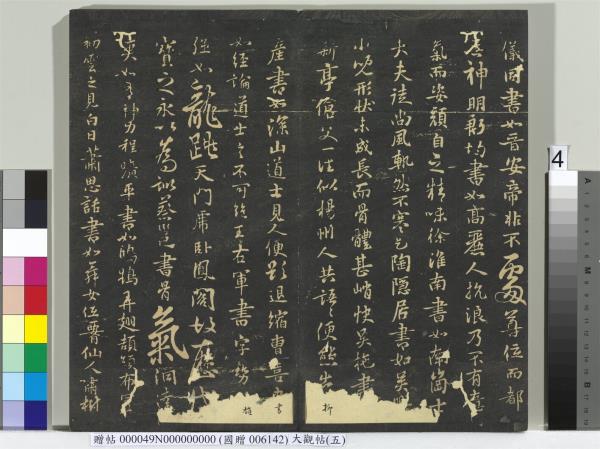 儀同書如晉安帝非不處尊位而都
無神明 書如高麗人抗浪乃不有意
氣而姿顏自乏精味徐淮南書如南岡士
大夫徒尚風軌然不寒乞陶隱居書如吳興
小兒形狀未成長而骨體甚峭快吳施書
新亭傖父一往似楊州人共語語便態出 柳
產書如深山道士見人便欲退縮曹喜書
如經論道士言不可絕王右軍書字勢 雄
強如龍跳天門虎臥鳳閣故歷代
寶之永以為訓蔡邕書骨氣洞達
爽爽如有神力程曠平書如鴻鵠弄翅頡頏布置
初雲之見白日蕭思話書如舞女低腰仙人嘯樹
4
A
B
贈帖 000049N000000000 (國贈 006142) 大觀帖(五)